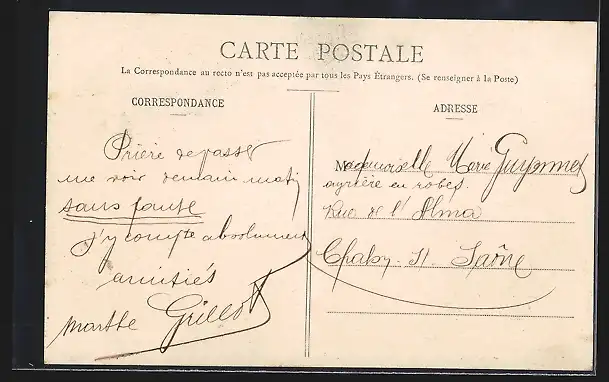 CARTE POSTALE
La Correspondance au recto n'est pas acceptée par tous les Pays Étrangers. (Se renseigner à la Poste)
CORRESPONDANCE
Prière de passer
me voir demain matin
sans faute
J'y compte absolument
amitiés
Marthe Grillot
ADRESSE
Mademoiselle Marie
ouvrière en robes.
Rue de l'Alma
Chalon-S-Saône